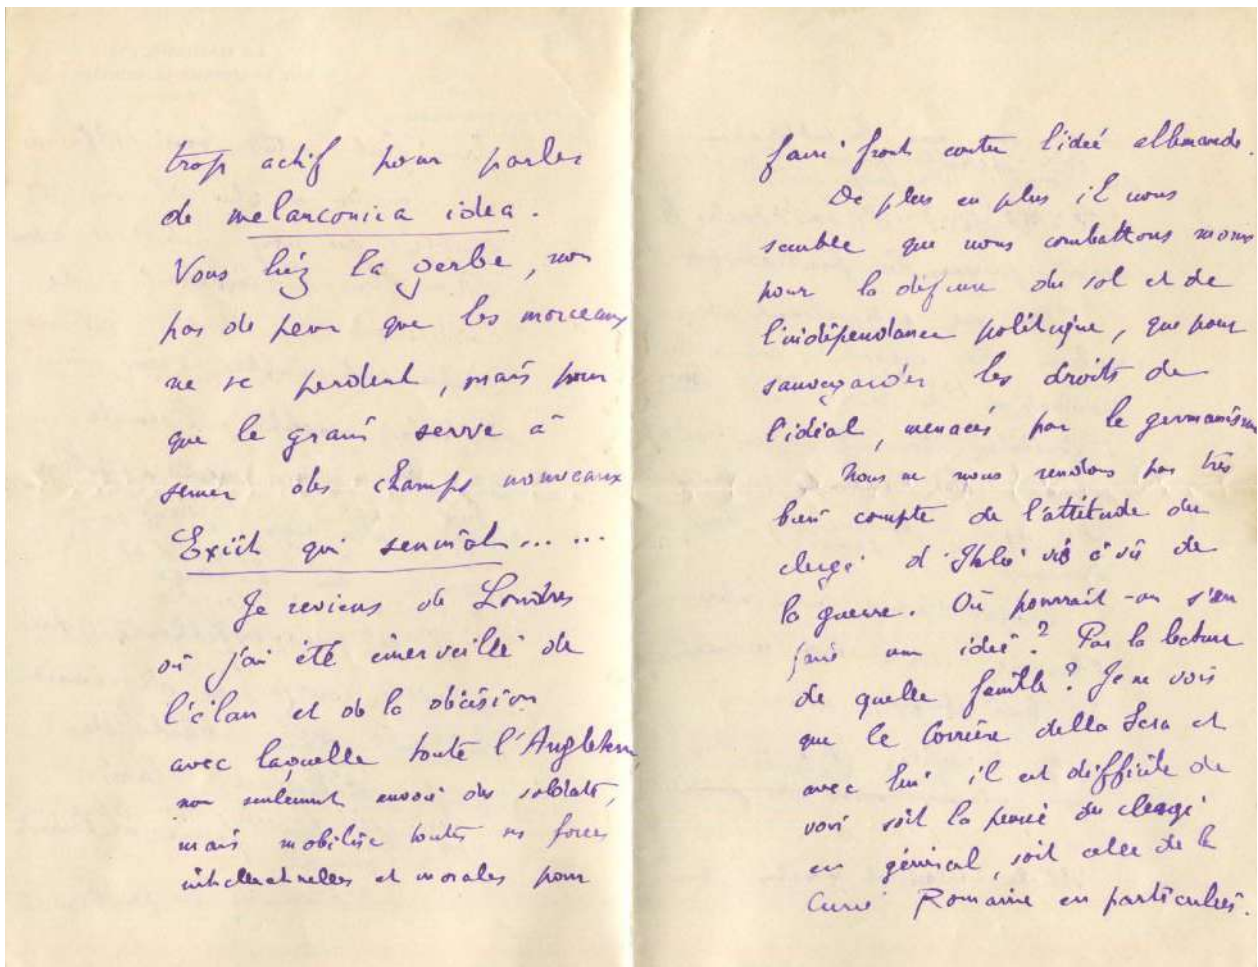 trop actif pour parler
de melanconica idea.
Vous liez la gerbe, non
pas de peur que les morceaux
ne se perdent, mais pour
que le grain serve à
semer des champs nouveaux
Exiit qui seminat......
Je reviens de Londres
où j'ai été émerveillé de
l'élan et de la décision
avec laquelle toute l'Angleterre,
non seulement envoie des soldats,
mais mobilise toutes ses forces
intellectuelles et morales pour
faire front contre l'idée allemande.
De plus en plus il nous
semble que nous combattons moins
pour la défense du sol et de
l'indépendance politique, que pour
sauvegarder les droits de
l'idéal, menacés par le germanisme
Nous ne nous rendons pas très
bien compte de l'attitude du
clergé d'Italie vis à vis de
la guerre. Où pourrait-on s'en
faire une idée? Par la lecture
de quelle feuille? Je ne vois
que le Corriere della Sera et
avec lui il est difficile de
voir soit la pensée du clergé
en général, soit celle de la
Curie Romaine en particulier.